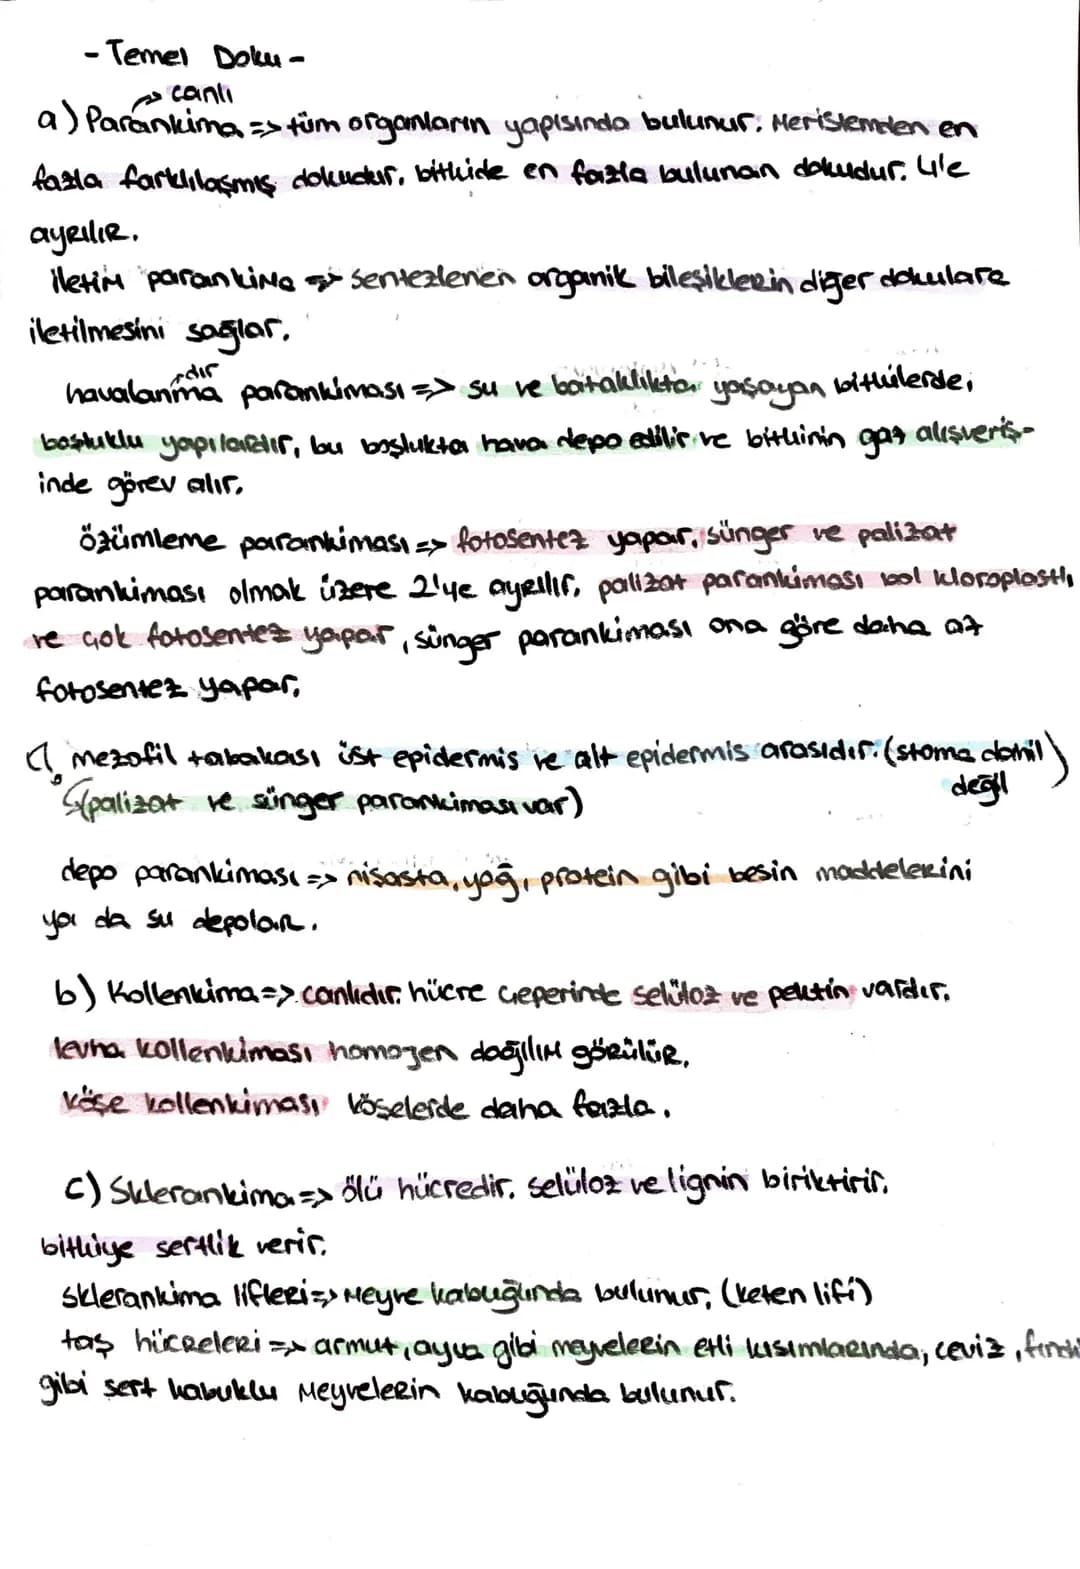 - Temel Doku -
→ canlı
a) Parankima => tüm organların yapısında bulunur. Meristemden en
fazla farklılaşmış dokudur, bitkide en fazla bulunan dokudur. 4'e
ayrılır.
iletim parankima => sentezlenen organik bileşiklerin diğer dokulara
iletilmesini sağlar.
dır
havalanma parankiması => su ve bataklıkta yaşayan bitkilerde,
boşluklu yapılardır, bu boşlukta hava depo edilir ve bitkinin gaz alışveriş-
inde görev alır.
özümleme parankiması => fotosentez yapar, sünger ve palizat
parankiması olmak üzere 2'ye ayrılır, palizat parankiması bol kloroplastlı
ve çok fotosentez yapar, sünger parankiması ona göre daha az
fotosentez yapar.
mezofil tabakası üst epidermis ve alt epidermis arasıdır. (stoma dahil
değil)
(palizat ve sünger parankiması var)
depo parankiması => nişasta, yağ, protein gibi besin maddelerini
ya da su depolar.
b) Kollenkima => canlıdır. hücre çeperinde selüloz ve pektin vardır.
levha kollenkiması homojen dağılım görülür.
köşe kollenkiması köşelerde daha fazla.
c) Sklerankima => ölü hücredir. selüloz ve lignin biriktirir.
bitkiye sertlik verir.
sklerankima lifleri => Meyve kabuğunda bulunur, (keten lifi)
taş hücreleri => armut, ayva gibi meyvelerin etli kısımlarında, ceviz, fındı
gibi sert kabuklu Meyvelerin kabuğunda bulunur.